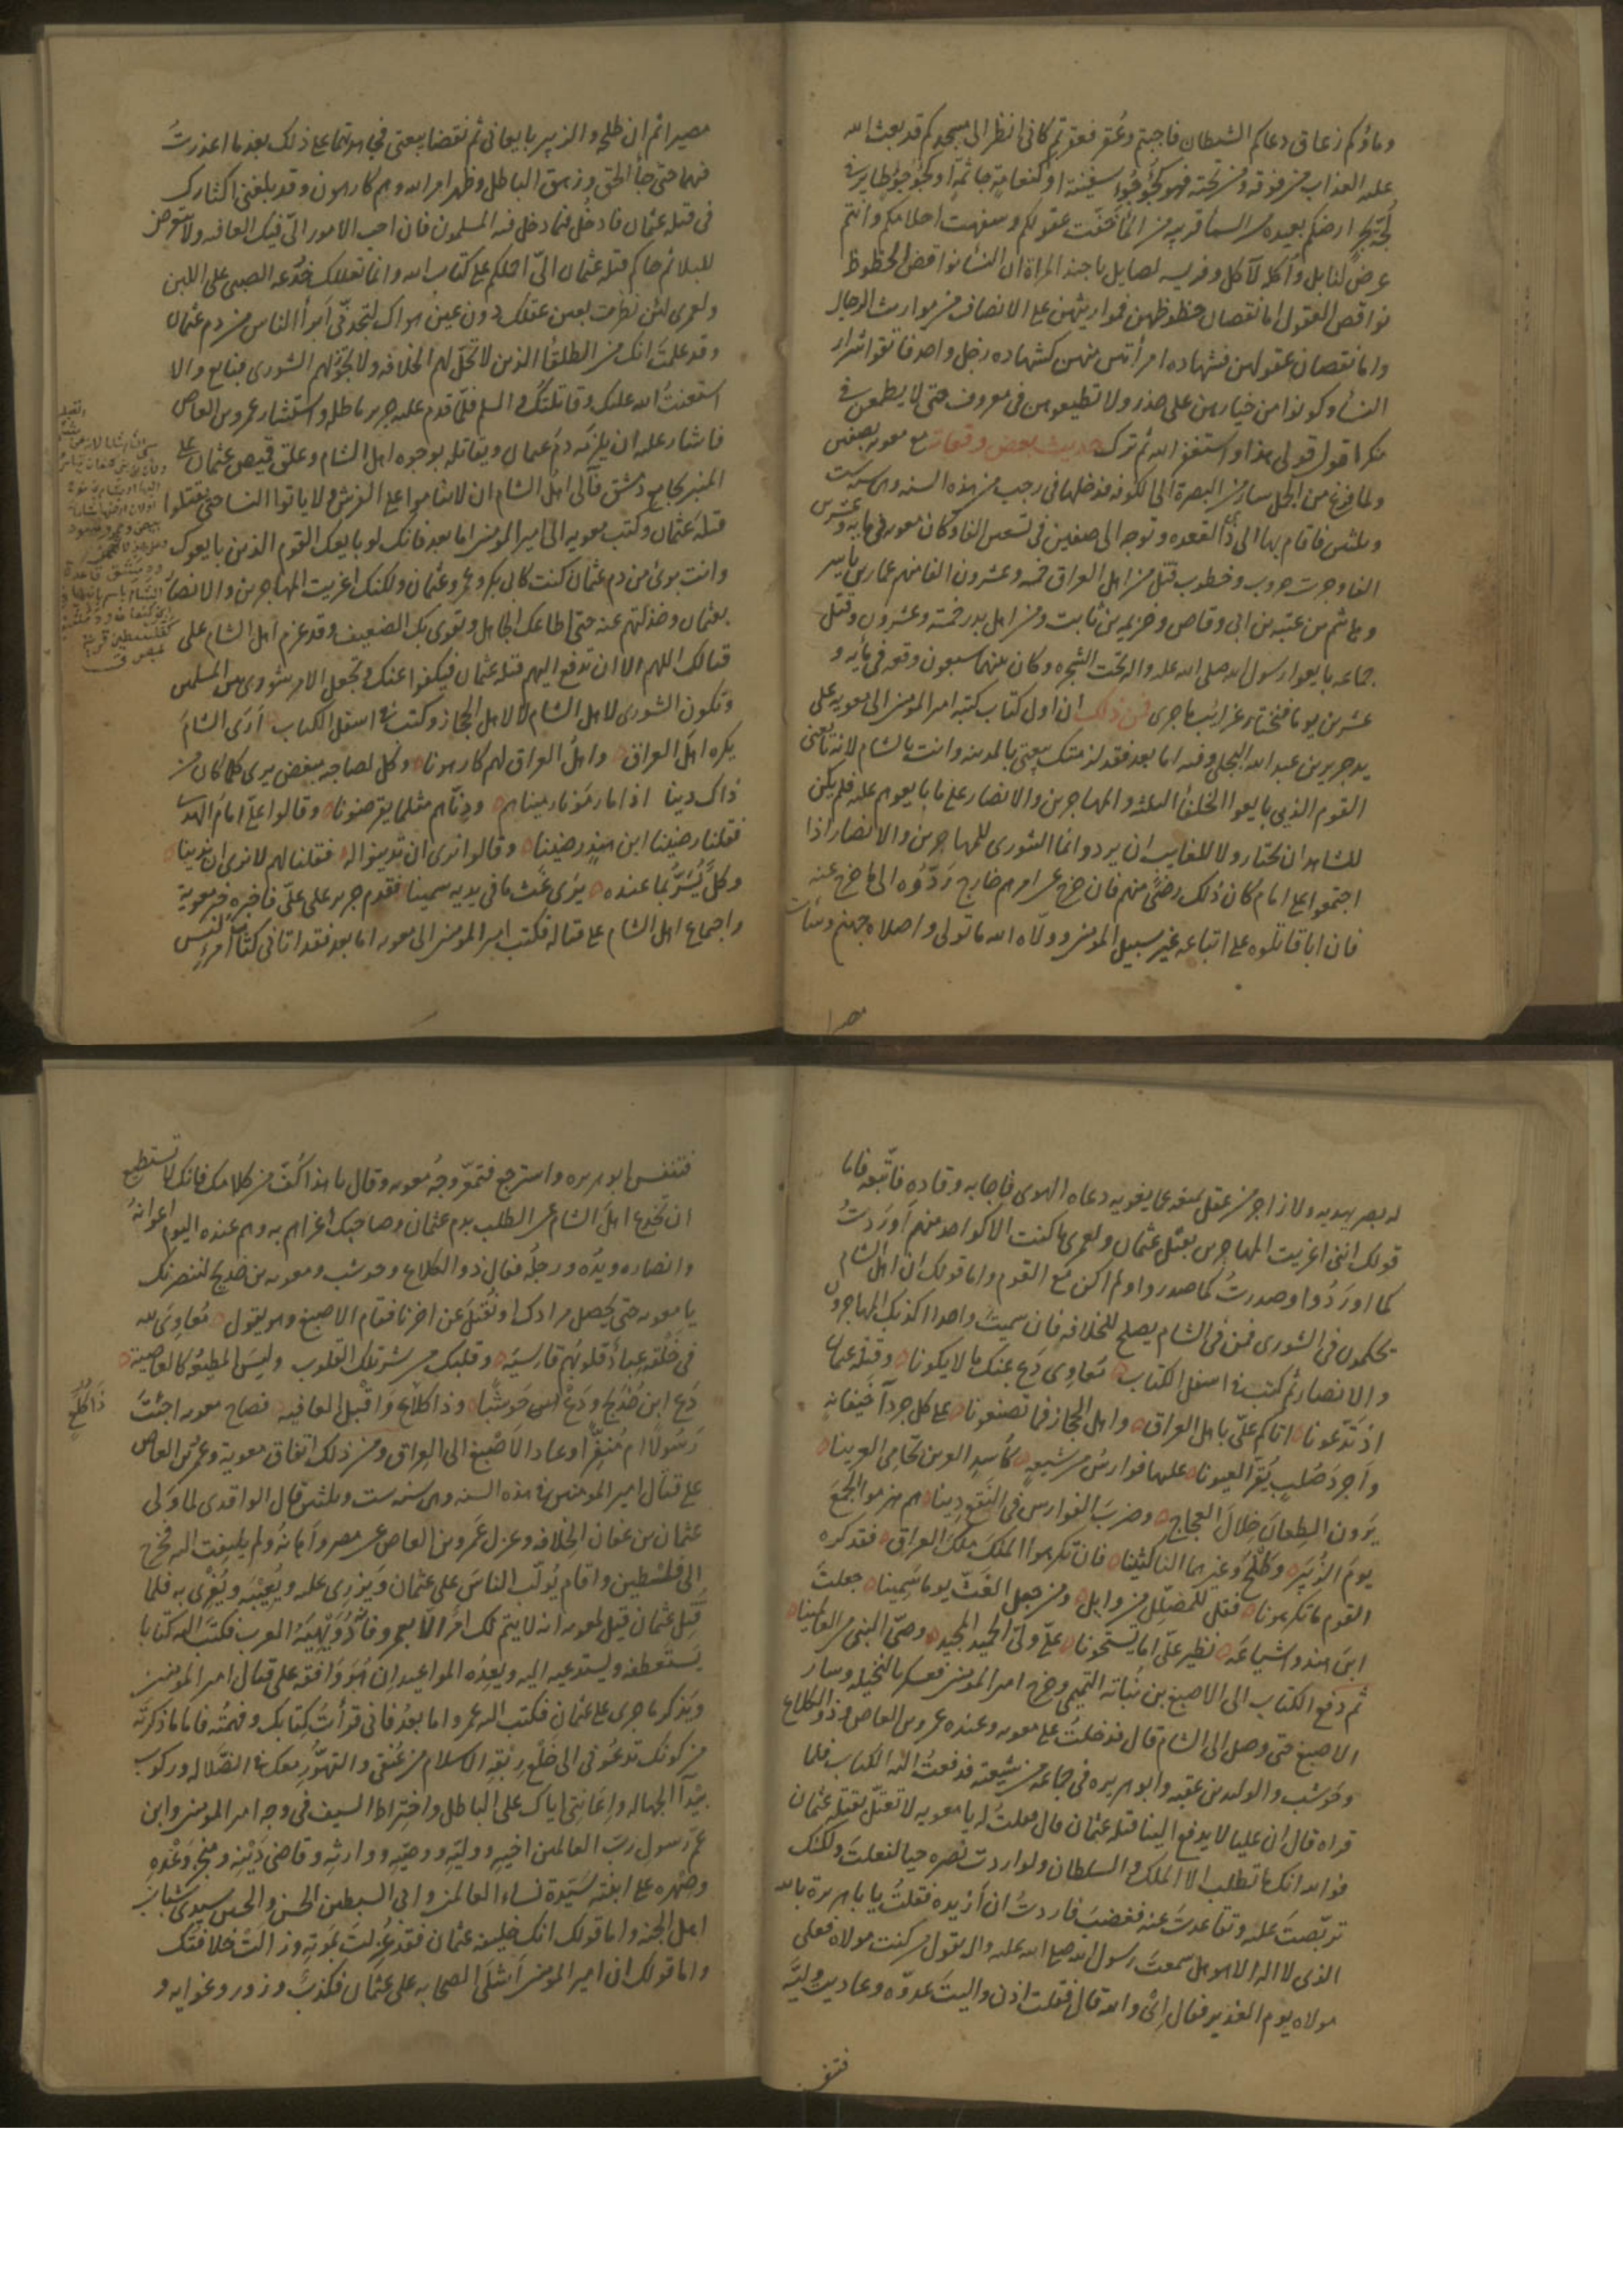 وماؤكم زعاق دعاكم الشيطان فاجبتم وعقر فعقرتم كانى انظر الى مسجدكم قد بعث الله
عليه العذاب من فوقه ومن تحته فهو كجؤجؤ سفينة او كنعامة جاثمة او كجؤجؤ طاير فى
لجة بحر ارضكم بعيده من السما قريبه من الما خفّت عقولكم وسفهت احلامكم وانتم
عرض لنابل وأكله لآكل وفريسه لصايل يا جند المراة ان النسا نواقص الحظوظ
نواقص العقول اما نقصان حظوظهن فمواريثهن على الانصاف من مواريث الرجال
واما نقصان عقولهن فشهاده امرأتين منهن كشهاده رجل واحد فاتقوا شرار
النسأ وكونوا من خيارهن على حذر ولا تطيعوهن فى معروف حتى لا يطمعن فى
منكر اقول قولى هذا واستغفر الله ثم ترك حديث بعض وقعات مع معويه بصفين
ولما فرغ من الجمل سار من البصرة الى الكوفه فدخلها فى رجب من هذه السنه وهى سنه ست
وثلثين فاقام بها الى ذى القعده وتوجه الى صفين فى تسعين الفا وكان معويه فى مايه وعشرين
الفا وجرت حروب وخطوب قتل من اهل العراق خمسه وعشرون الفا منهم عمار بن ياسر
وهاشم بن عتبه بن ابى وقاص وخزيمه بن ثابت ومن اهل بدر خمسة وعشرون وقتل
جماعه بايعوا رسول الله صلى الله عليه واله تحت الشجره وكان بينهما سبعون وقعه فى مأيه و
عشرين يوما فنختار غرايب ما جرى فمن ذلك ان اول كتاب كتبه امير المومنين الى معويه على
يد جرير بن عبد الله البجلى وفيه اما بعد فقد لزمتك بيعتى بالمدينه وانت بالشام لانه بايعنى
القوم الذين بايعوا الخلفأ الثلثه والمهاجرين والانصار على ما بايعوهم عليه فلم يكن
للشاهد ان يختار ولا للغايب ان يرد وانما الشورى للمهاجرين والانصار اذا
اجتمعوا على امام كان ذلك رضىً منهم فان خرج عن امرهم خارج ردّوه الى ما خرج عنه
فان ابا قاتلوه على اتباعه غير سبيل المومنين وولّاه الله ما تولى واصلاه جهنم وسأت
مصيرا
مصيرا ثم ان طلحه والزبير بايعانى ثم نقضا بيعتى فجاهدتهما على ذلك بعد ما اعذرت
فيهما حتى جأ الحق وزهق الباطل وظهر امر الله وهم كارهون وقد بلغنى اكثارك
فى قتله عثمان فادخل فيما دخل فيه المسلمون فان احب الامور الىّ فيك العافيه ولا تتعرض
للبلا ثم حاكم قتله عثمان الىّ احملكم على كتاب الله وانما تعللك خدعه الصبى على اللبن
ولعمرى لئن نظرت بعين عقلك دون عين هواك لتجدنّى أبرأ الناس من دم عثمان
وقد علمت انك من الطلقأ الذين لا تحل لهم الخلافه ولا تجوز لهم الشورى فبايع والا
استعنت الله عليك وقاتلتك والسلم فلمّا قدم عليه جرير ماطله واستشار عمرو بن العاص
فاشار عليه ان يلزمه دم عثمان ويقاتله بوجوه اهل الشام وعلق قميص عثمان على
المنبر بجامع دمشق فآلى اهل الشام ان لا يناموا على الفرش ولا ياتوا النسا حتى يقتلوا
قتله عثمان وكتب معويه الى امير المومنين اما بعد فانك لو بايعك القوم الذين بايعوك
وانت برئ من دم عثمان كنت كابى بكر وعمر وعثمان ولكنك اغريت المهاجرين والانصار
بعثمان وخذلتهم عنه حتى اطاعك الجاهل وتقوى بك الضعيف وقد عزم اهل الشام على
قتالك اللهم الا ان تدفع اليهم قتله عثمان فيكفوا عنك وتجعل الامر شورى بين المسلمين
وتكون الشورى لاهل الشام لا لاهل الحجاز وكتب فى اسفل الكتاب أرى الشام
يكره اهل العراق واهل العراق لهم كارهونا وكل لصاحبه مبغض يرى كلما كان من
ذاك دينا اذا ما رمونا رميناهم ودنّاهم مثلما يقرضونا وقالوا على امام لهم
فقلنا رضينا ابن هند رضينا وقالوا نرى ان تدينوا له فقلنا لهم لا نرى ان ندينا
وكلّ يُسَرّ بما عنده يرى غث ما فى يديه سمينا فقدم جرير على علىّ فاخبره خبر معوية
واجماع اهل الشام على قتاله فكتب امير المومنين الى معويه اما بعد فقد اتانى كتاب امرء ليس
له بصر يهديه ولا زاجر من عقل يمنعه عما يغويه دعاه الهوى فاجابه وقاده فاتّبعه فاما
قولك اننى اغريت المهاجرين بقتل عثمان ولعمرى ما كنت الا كواحد منهم أوردت
كما اوردوا وصدرت كما صدروا ولم اكن مع القوم واما قولك ان اهل الشام
يحكمون فى الشورى فمن فى الشام يصلح للخلافه فان سميت واحدا كذبك المهاجرون
والانصار ثم كتب فى اسفل الكتاب معاوى دع عنك ما لا يكونا وقتله عثمان
اذ تدعونا اتاكم علىّ باهل العراق واهل الحجاز فما تصنعونا على كل جردآ خيفانة
واجرد صلب يقر العيونا عليها فوارس من شيعه كأسد العرين تحامى العرينا
يرون الطعان خلال العجاج وضرب الفوارس فى النقع دينا هم هزموا الجمع
يوم الزبير وطلح وغيرهما الناكثينا فان تكرهوا الملك ملك العراق فقد كره
القوم ما تكرهونا فقل للمضلل من وايل ومن جعل الغث يوما سمينا جعلت
ابن هند واشياعه نظير علىّ اما يستحونا علىّ ولىّ الحميد المجيد وصىّ النبى من العالمينا
ثم دفع الكتاب الى الاصبغ بن نباته التميمى وخرج امير المومنين فعسكر بالنخيله وسار
الاصبغ حتى وصل الى الشام قال فدخلت على معويه وعنده عمرو بن العاص وذو الكلاع
وحوشب والوليد بن عقبه وابو هريره فى جماعه من شيعته فدفعت اليه الكتاب فلما
قراه قال ان عليا لا يدفع الينا قتله عثمان قال فقلت له يا معويه لا تعتل بقتله عثمان
فوالله انك ما تطلب الا الملك والسلطان ولو اردت نصره حيا لفعلت ولكنك
تربّصت عليه وتقاعدت عنه فغضب فاردت ان أزيده فقلت يا با هريرة بالله
الذى لا اله الا هو هل سمعت رسول الله صلى الله عليه واله يقول من كنت مولاه فعلى
مولاه يوم الغدير فقال إى والله قال فقلت اذن واليت عدوّه وعاديت وليّه
فتنفس
فتنفس ابو هريره واسترجع فتمعّر وجه معويه وقال يا هذا كفّ من كلامك فانك لا تستطيع
ان تخدع اهل الشام عن الطلب بدم عثمان وصاحبك اغراهم به وهم عنده اليوم اعوانه
وانصاره ويده ورجله فقال ذو الكلاع وحوشب ومعويه بن خديج لننصرنك
يا معويه حتى يحصل مرادك او نقتل عن اخرنا فقام الاصبغ وهو يقول معاوى لله
فى خلقه عباد قلوبهم قاسيه وقلبك من شر تلك القلوب وليس المطيع كالعاصية
دع ابن خديج ودع حوشبا وذا كلاع واقبل العافيه فصاح معويه اجئت
رسولا ام منفّرا وعاد الاصبغ الى العراق ومن ذلك اتفاق معوية وعمرو بن العاص
على قتال امير المومنين فى هذه السنه وهى سنه ست وثلثين قال الواقدى لما ولى
عثمان بن عفان الخلافه وعزل عمرو بن العاص عن مصر واهانه ولم يلتفت اليه فخرج
الى فلسطين واقام يؤلّب الناس على عثمان ويزرى عليه ويعيبه ويغرى به فلما
قتل عثمان قيل لمعويه انه لا يتم لك امر الا بعمرو فانه دويهية العرب فكتب اليه كتابا
يستعطفه ويستدعيه اليه ويعده المواعيد ان هو وافقه على قتال امير المومنين
ويذكر ما جرى على عثمان فكتب اليه عمرو اما بعد فانى قرأت كتابك وفهمته فاما ما ذكرته
من كونك تدعونى الى خلع ربقه الاسلام من عنقى والتهوّر معك فى الضلاله وركوب
بيدآ الجهاله واعانتى اياك على الباطل واختراط السيف فى وجه امير المومنين وابن
عمّ رسول رب العالمين اخيه ووليّه ووصيّه ووارثه وقاضى دينه ومنجز وعده
وصهره على ابنته سيّدة نساء العالمين وابى السبطين الحسن والحسين سيدى شباب
اهل الجنه واما قولك انك خليفه عثمان فقد عُزلت بموته وزالت خلافتك
واما قولك ان امير المومنين أشلى الصحابه على عثمان فكذب وزور وغوايه و
ذا كلع